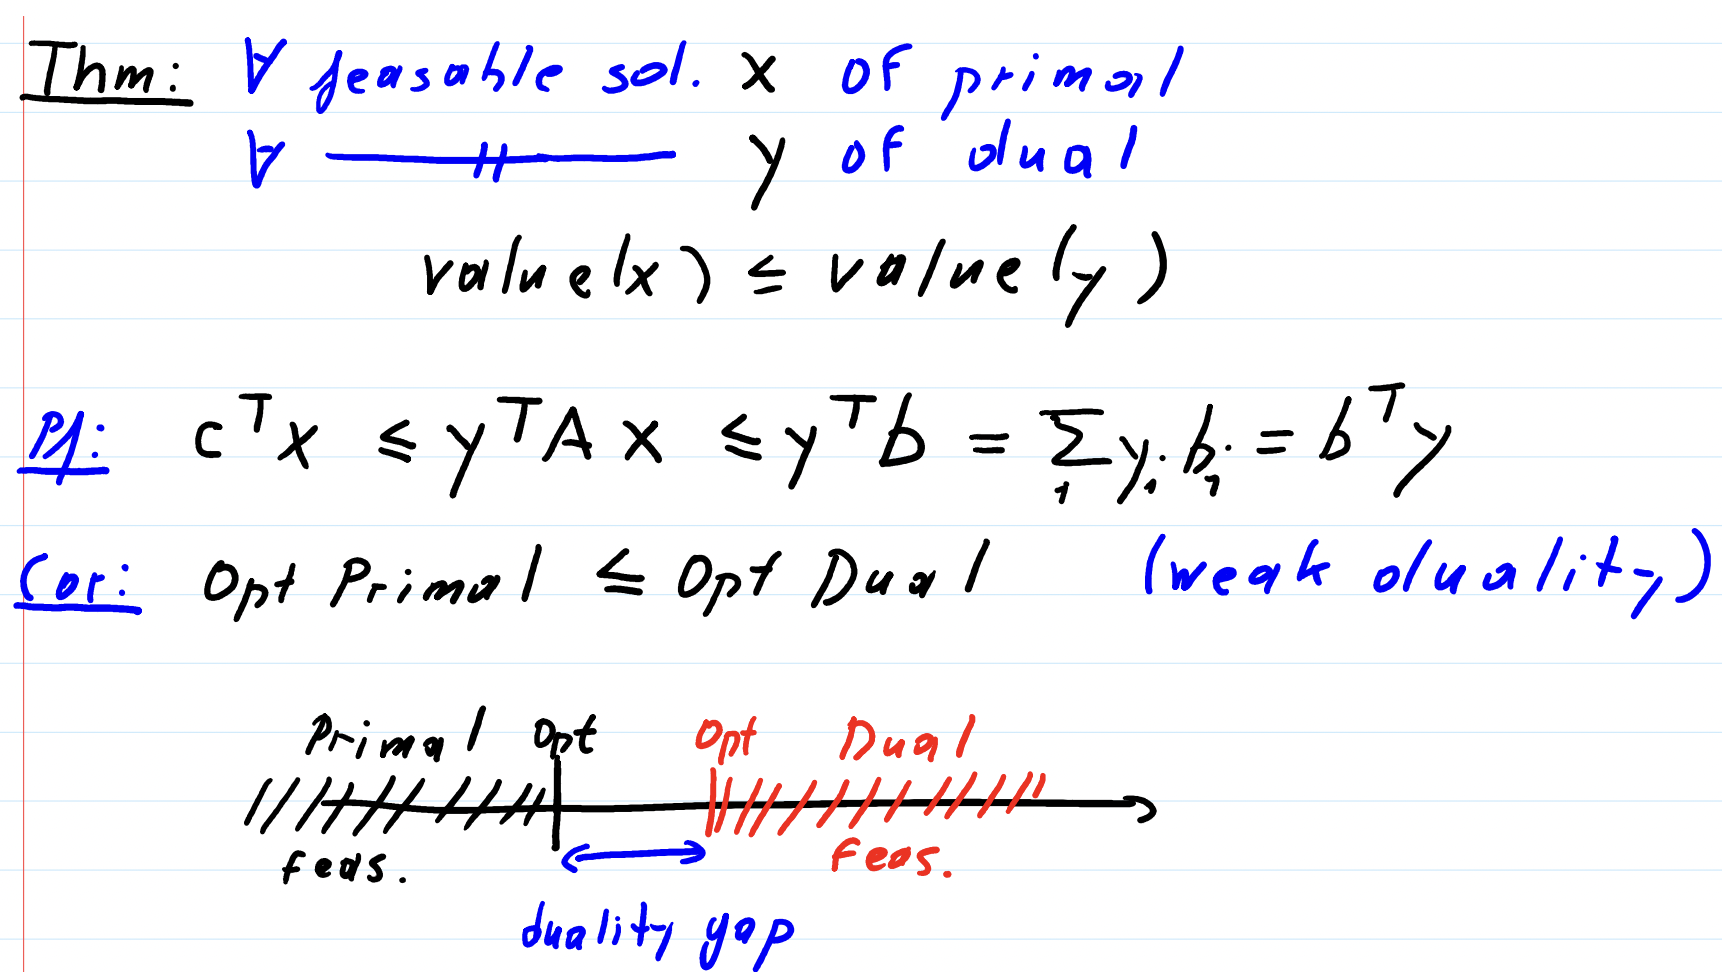 Thm: ∀ feasable sol. x of primal
∀ —〃— y of dual
value(x) ≤ value(y)
Pf: cᵀx ≤ yᵀAx ≤ yᵀb = ∑ᵢ yᵢ bᵢ = bᵀy
Cor: Opt Primal ≤ Opt Dual (weak duality)
Primal Opt Opt Dual
feas. Feas.
duality gap